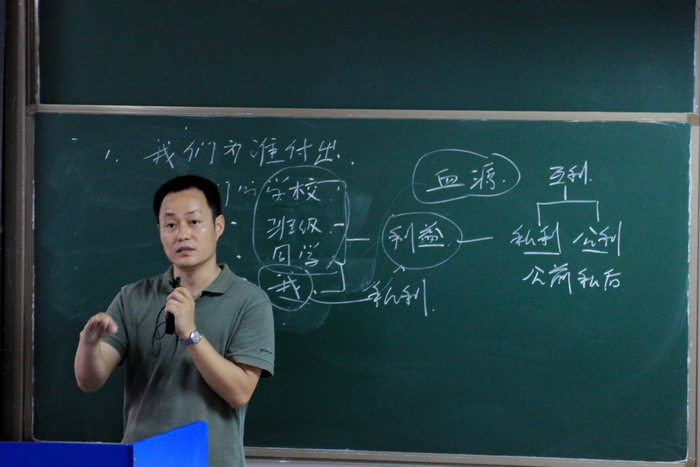 1. 我们为谁付出.
学校
班级
同学
我
私利.
利益
血源.
互利.
私利 公利
公前私后